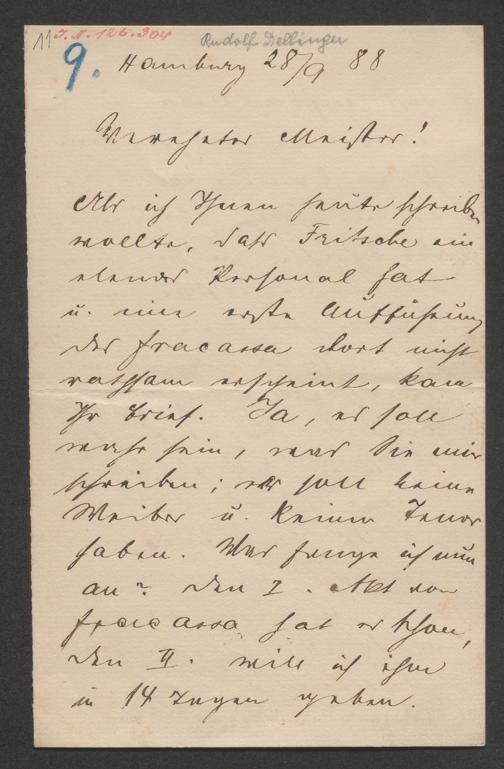 11 I.N. 126.304
Rudolf Dellinger
9.
Hamburg 28/9 88
Verehrter Meister!
Als ich Ihnen heute schreiben
wollte, daß Fritsche ein
elendes Personal hat
u. eine erste Aufführung
des Fracassa dort nicht
rathsam erscheint, kam
Ihr Brief. Ja, es soll
wahr sein, was Sie mir
schreiben; er soll keine
Weiber u. keinen Tenor
haben. Was fange ich nun
an? Den I. Akt von
Fracassa hat er schon,
den II. will ich ihm
in 14 Tagen geben.